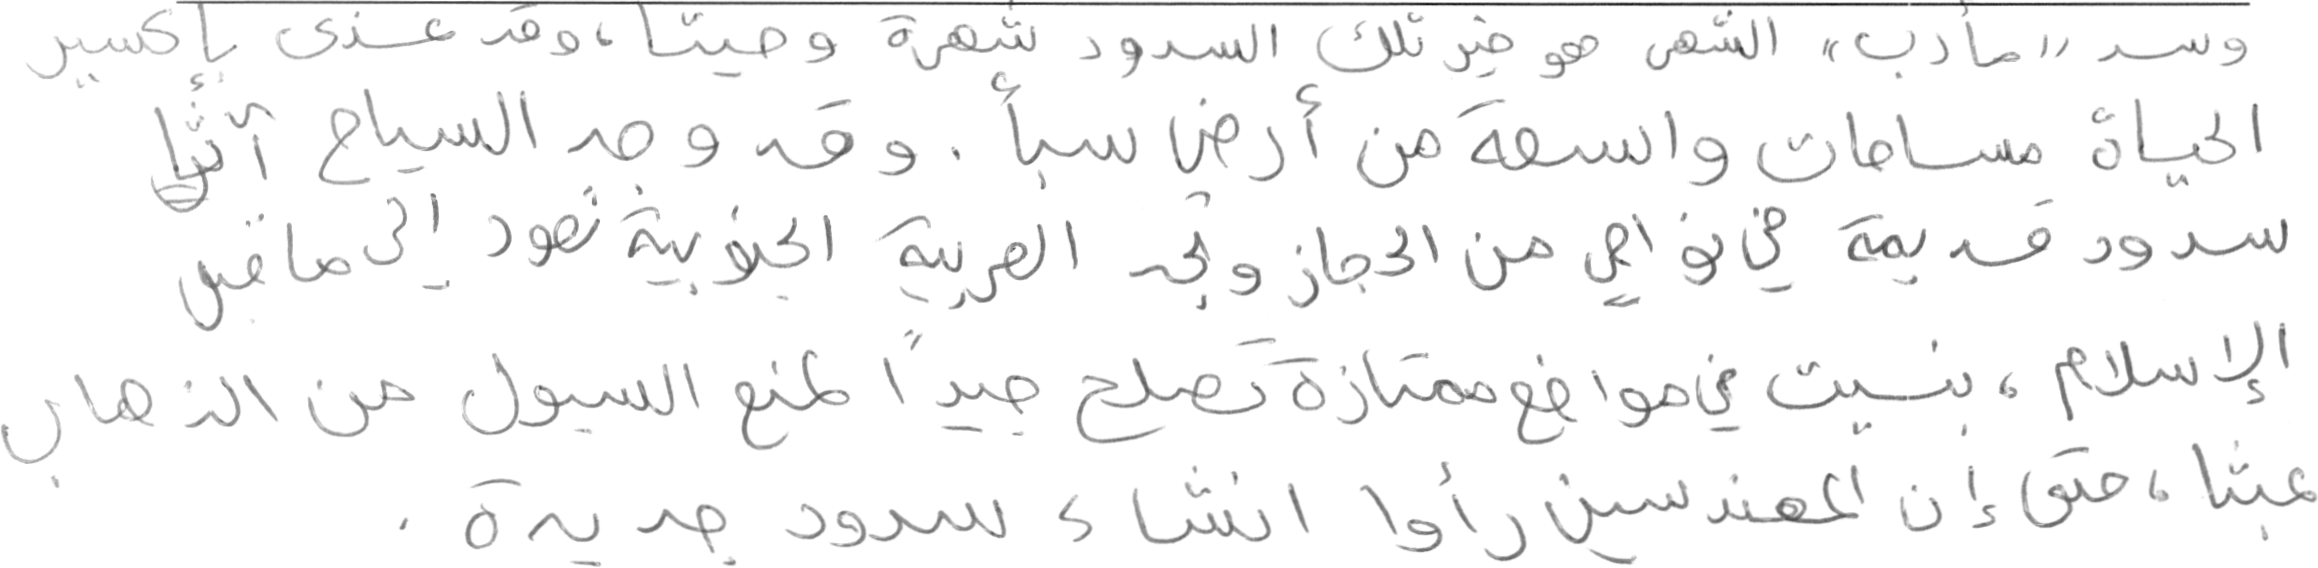 وسد "مأرب" الشهر هو خير تلك السدود شهرة وصيتا، وقد غذى بإكسير
الحياة مساحات واسعة من أرض سبأ. وقد وجد السياح آثار
سدود قديمة في نواحي من الحجاز ونجد العربية الجنوبية تعود إلى ما قبل
الإسلام، بنيت في مواضع ممتازة تصلح جيداً لمنع السيول من الذهاب
عبثا، حتى إن المهندسين رأوا انشاء سدود جديدة.